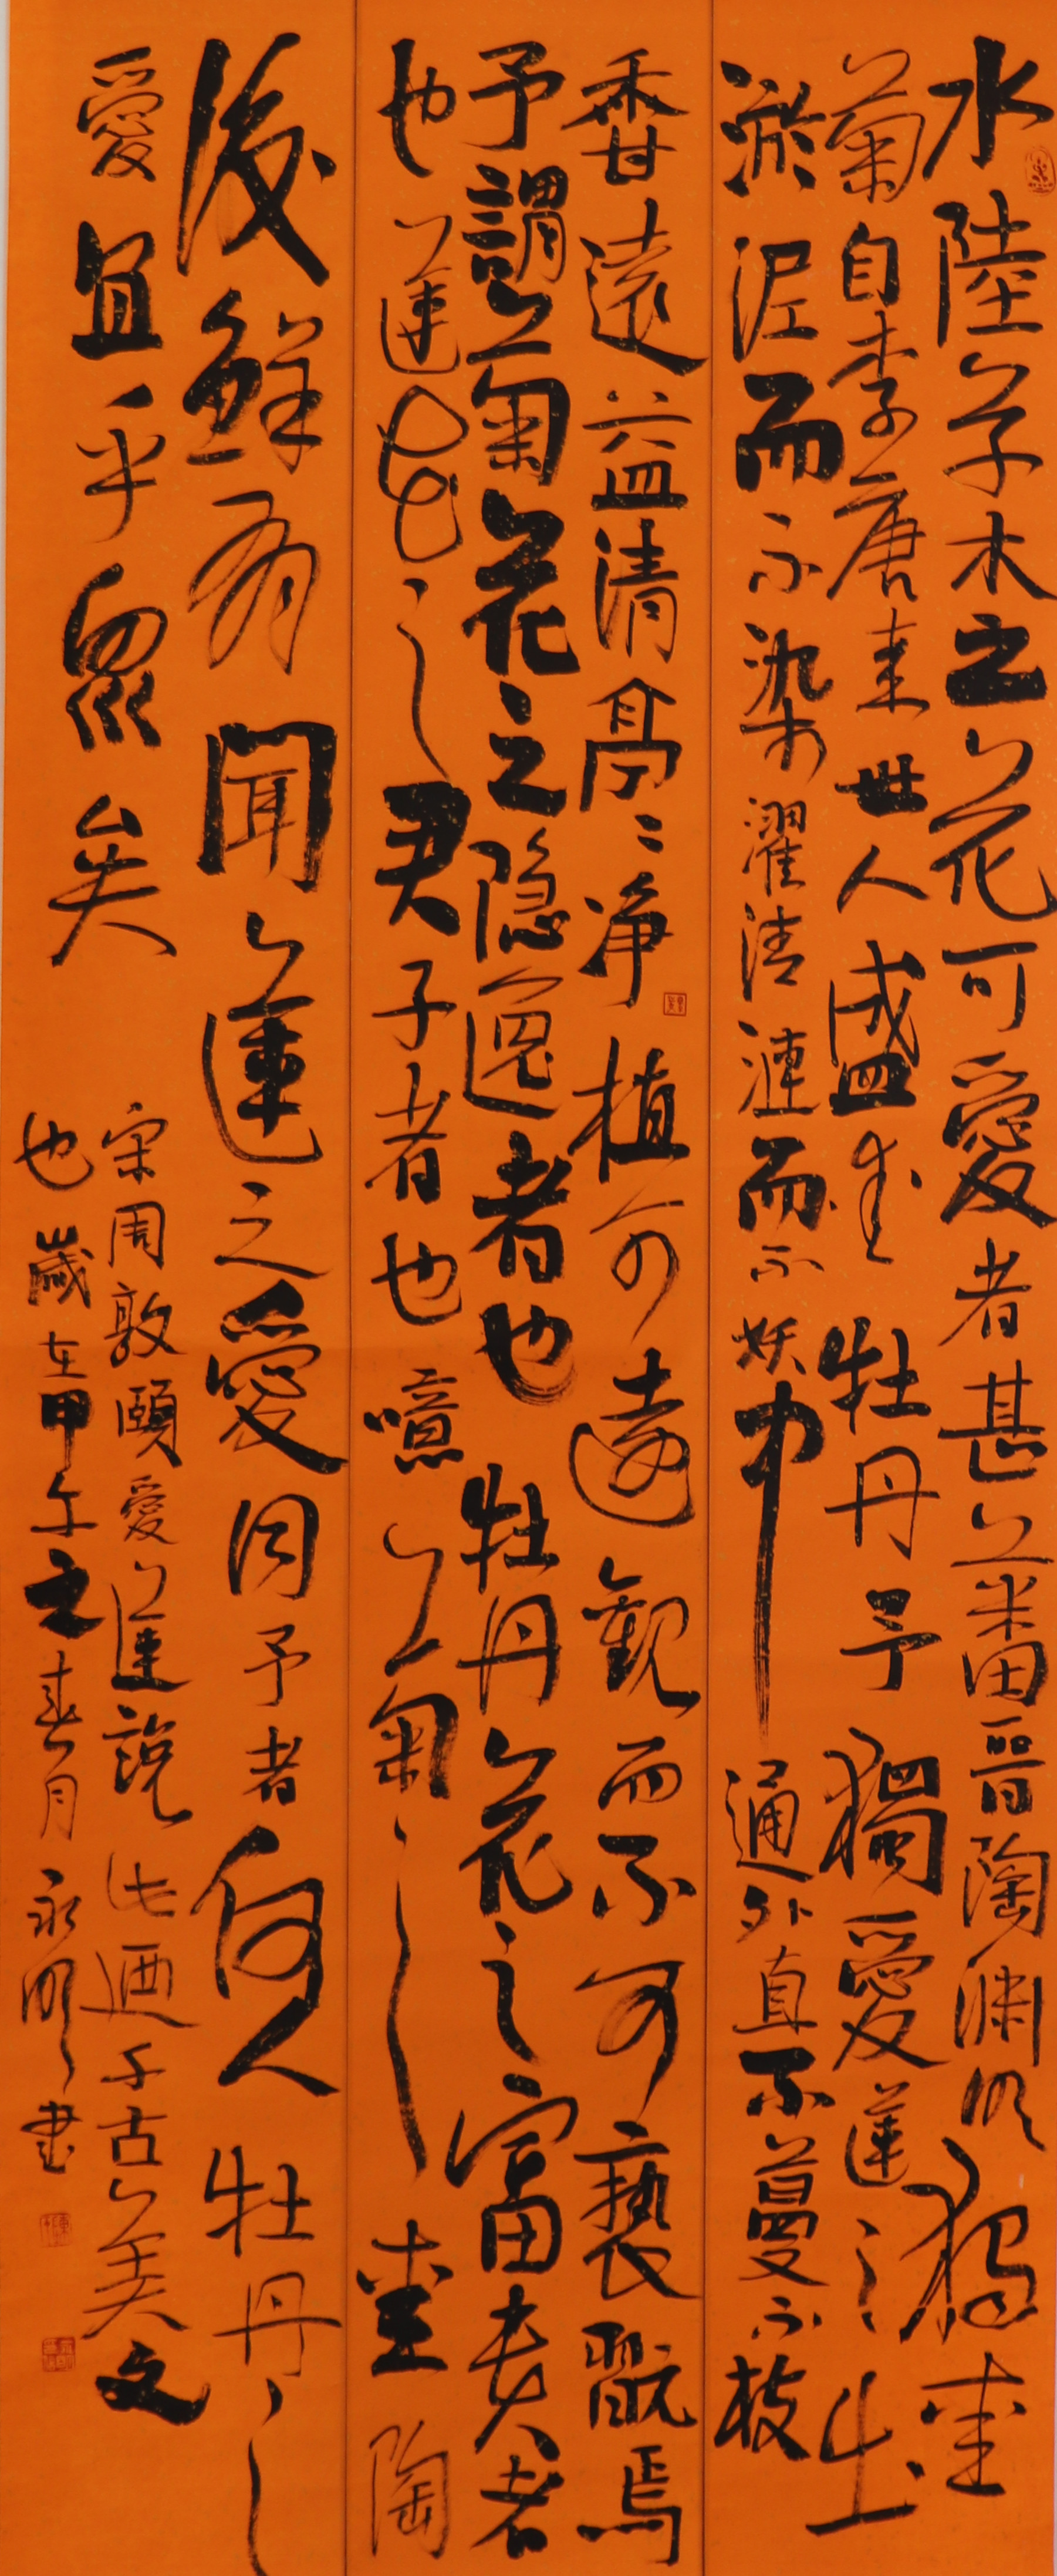 水陸草木之花可愛者甚蕃晉陶淵明獨愛
菊自李唐来世人盛愛牡丹予獨愛蓮之出
淤泥而不染濯清漣而不妖中通外直不蔓不枝
香遠益清亭々净植可遠觀而不可褻翫焉
予謂菊花之隐逸者也牡丹花之富貴者
也蓮花之君子者也噫菊之愛陶
後鮮有聞蓮之愛同予者何人牡丹之
愛宜乎眾矣
宋周敦頤愛蓮說此迺千古美文
也歲在甲午之春月永明書